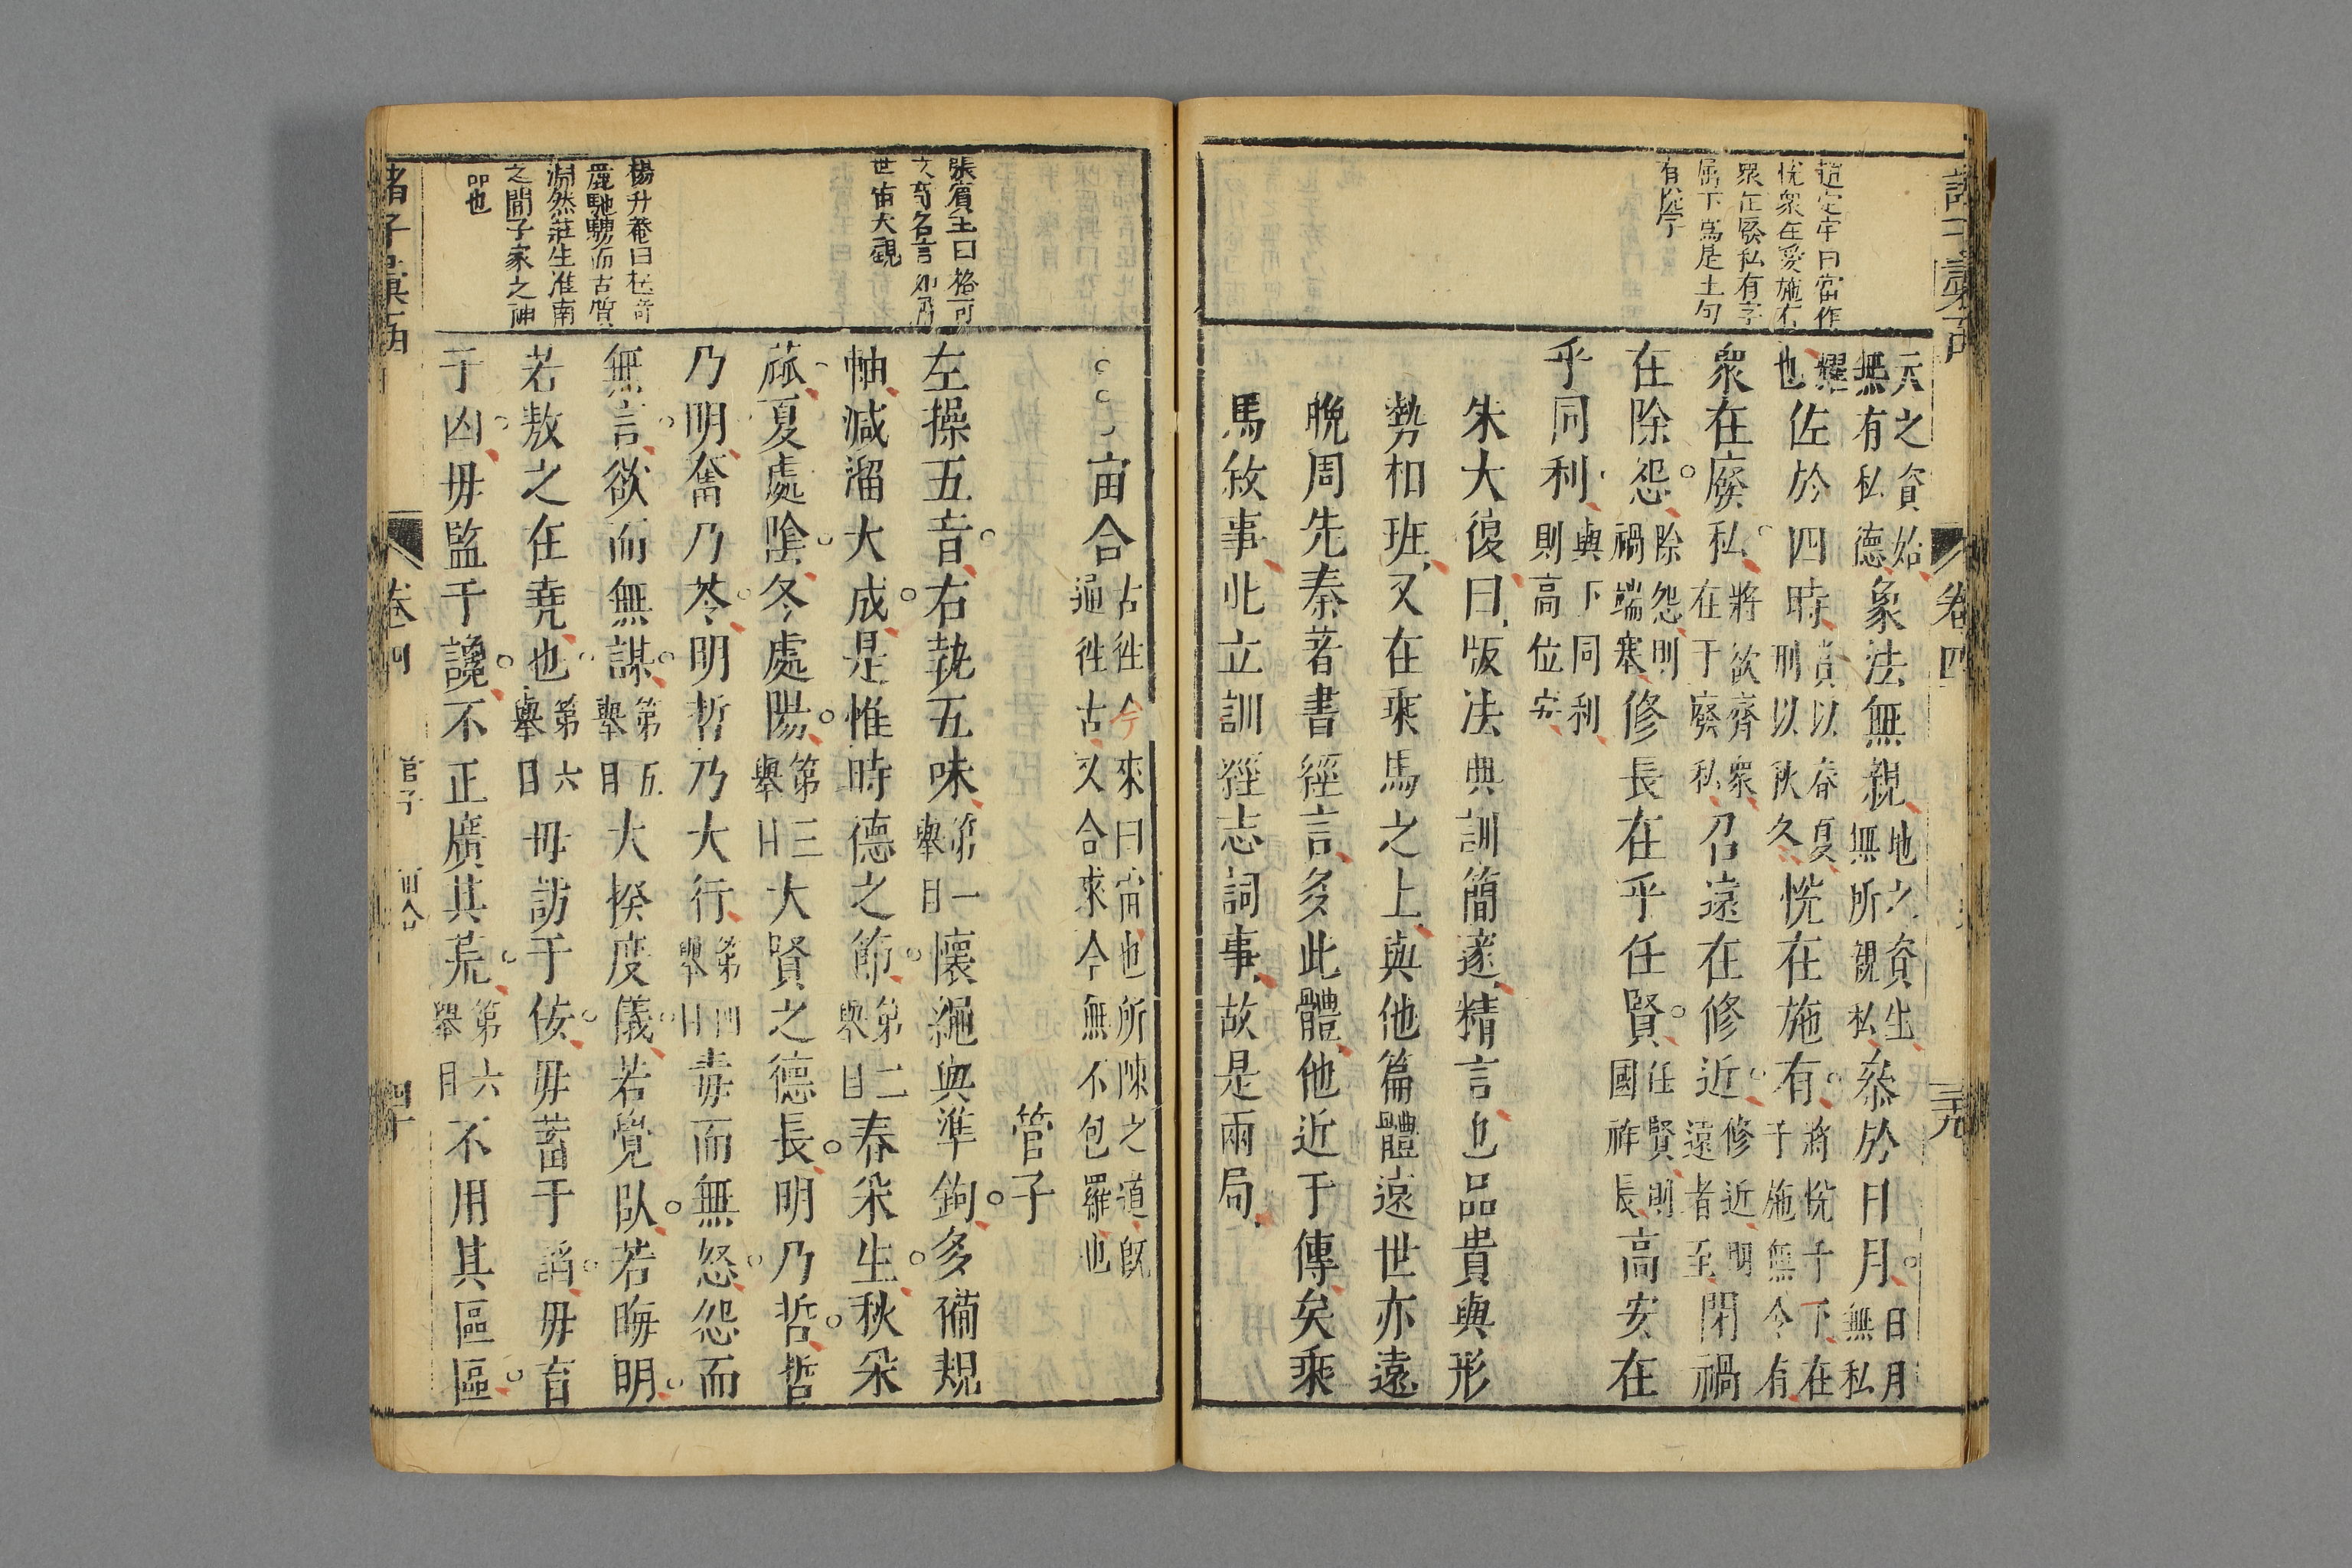 趙定宇曰當作
恱衆在愛施右
衆在廢私有字
屬下爲是土句
有
天之資始
無有私德象法無親地之資生
無所親私叅於日月日月
無私
耀也佐於四時賞以春夏
刑以秋冬恱在施有將恱于下在
于施無令有
衆在廢私將欲齊衆
在于廢私召遠在修近修近明
遠者至閉禍
在除怨除怨明
禍端塞修長在乎任賢任賢則
國祚長高安在
乎同利與下同利
則高位安
朱大復曰版法典訓簡邃精言也品貴與形
勢相班又在乘馬之上與他篇體遠世亦遠
晚周先秦著書徑言多此體他近于傳矣乘
馬敘事此立訓經志詞事故是兩局
卷四
張賔王曰格可
文奇名言
世宙大觀
楊升菴曰极奇
麗馳騁而古質
淵然莊生淮南
之間子家之神
品也
宙合古徃今來曰宙也所陳之道旣
通徃古又合來今無不包羅也
管子
左操五音右執五味第一
舉目懷繩與準鉤多備規
軸減溜大成是惟時德之節第二
舉目春采生秋采
蓏夏處陰冬處陽第三
舉目大賢之德長明乃哲哲
乃明奮乃苓明哲乃大行第四
舉目毒而無怒怨而
無言欲而無謀第五
舉目大揆度儀若覺臥若晦明
若敖之在堯也第六
舉目毋訪于佞毋蓄于諂毋育
于凶毋監于讒不正廣其荒第六
舉目不用其區區
諸子彙函
卷四
管子
宙合
四十